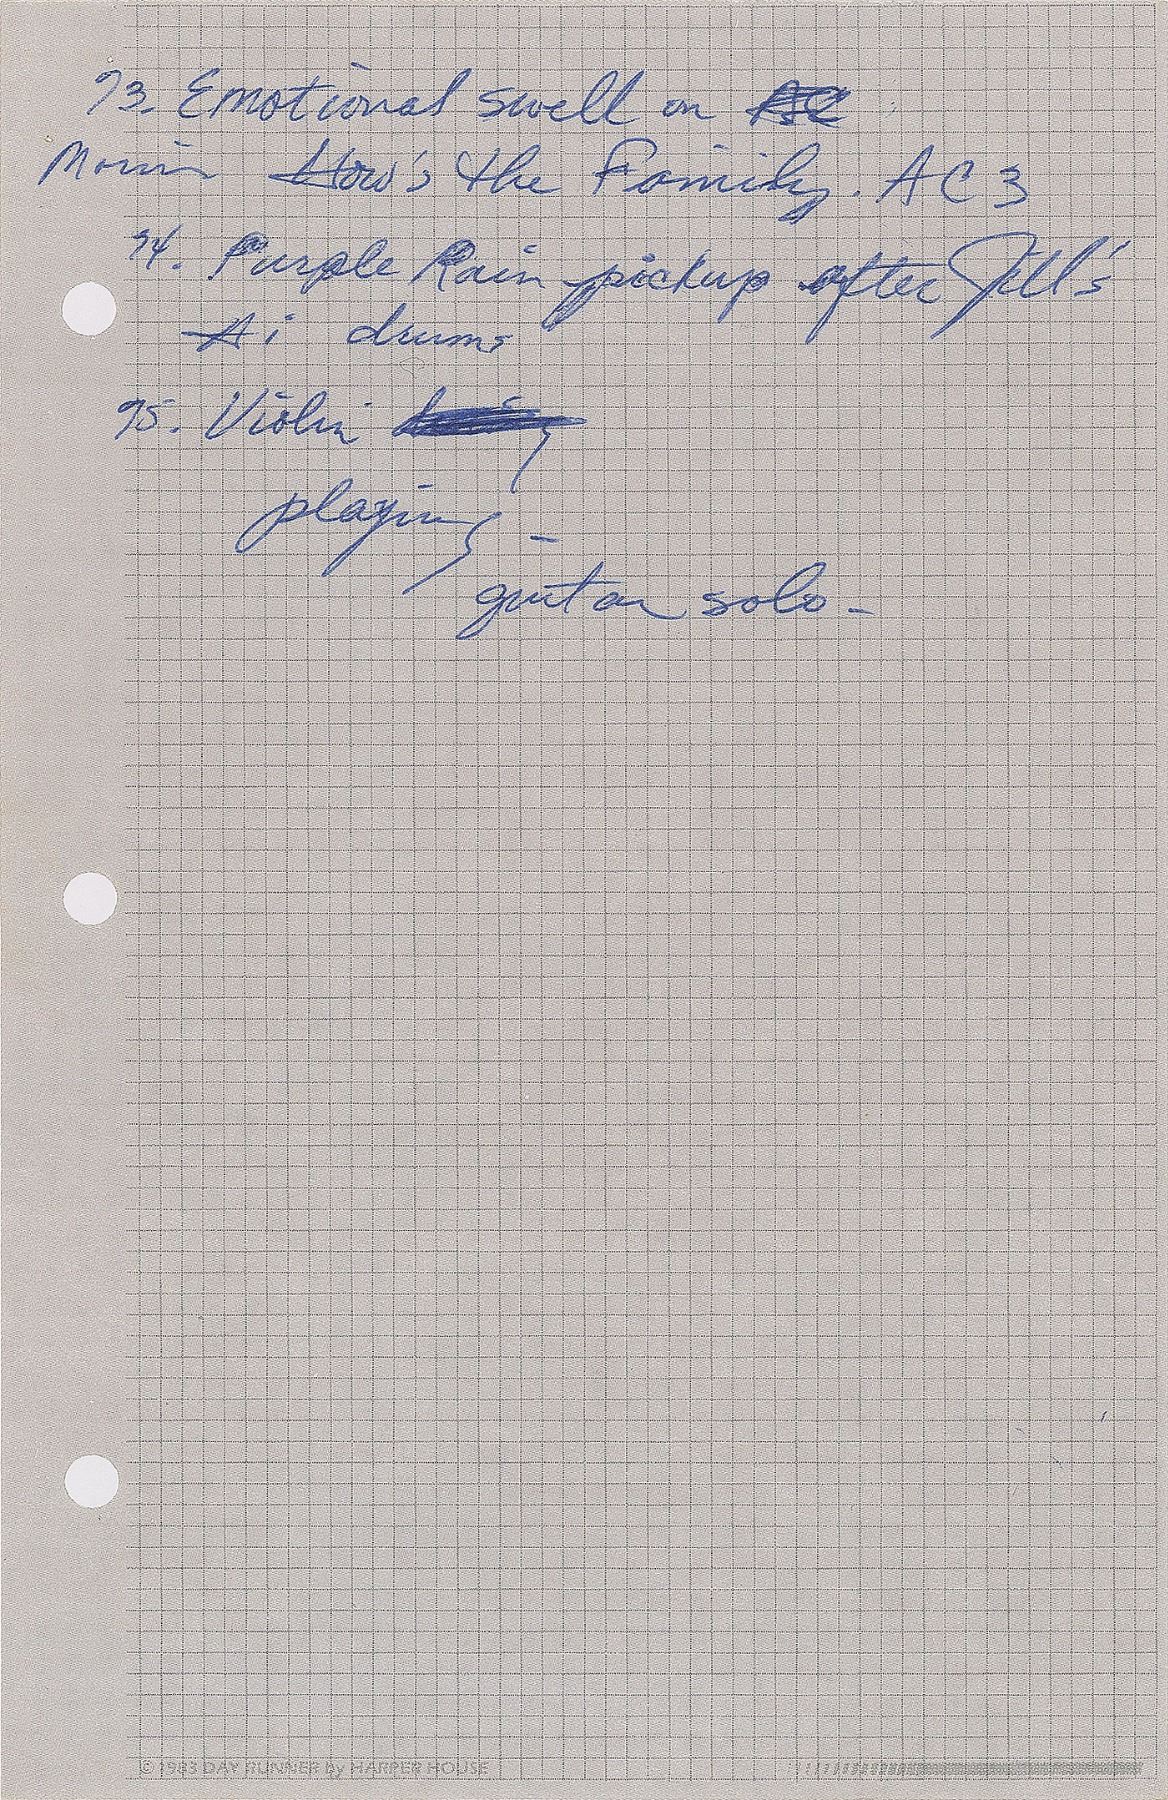 93. Emotional swell on
Morris How's the Family. AC 3
94. Purple Rain pickup after Jill's
Hi drums
95. Violin
playing -
guitar solo -
© 1983 DAY RUNNER by HARPER HOUSE